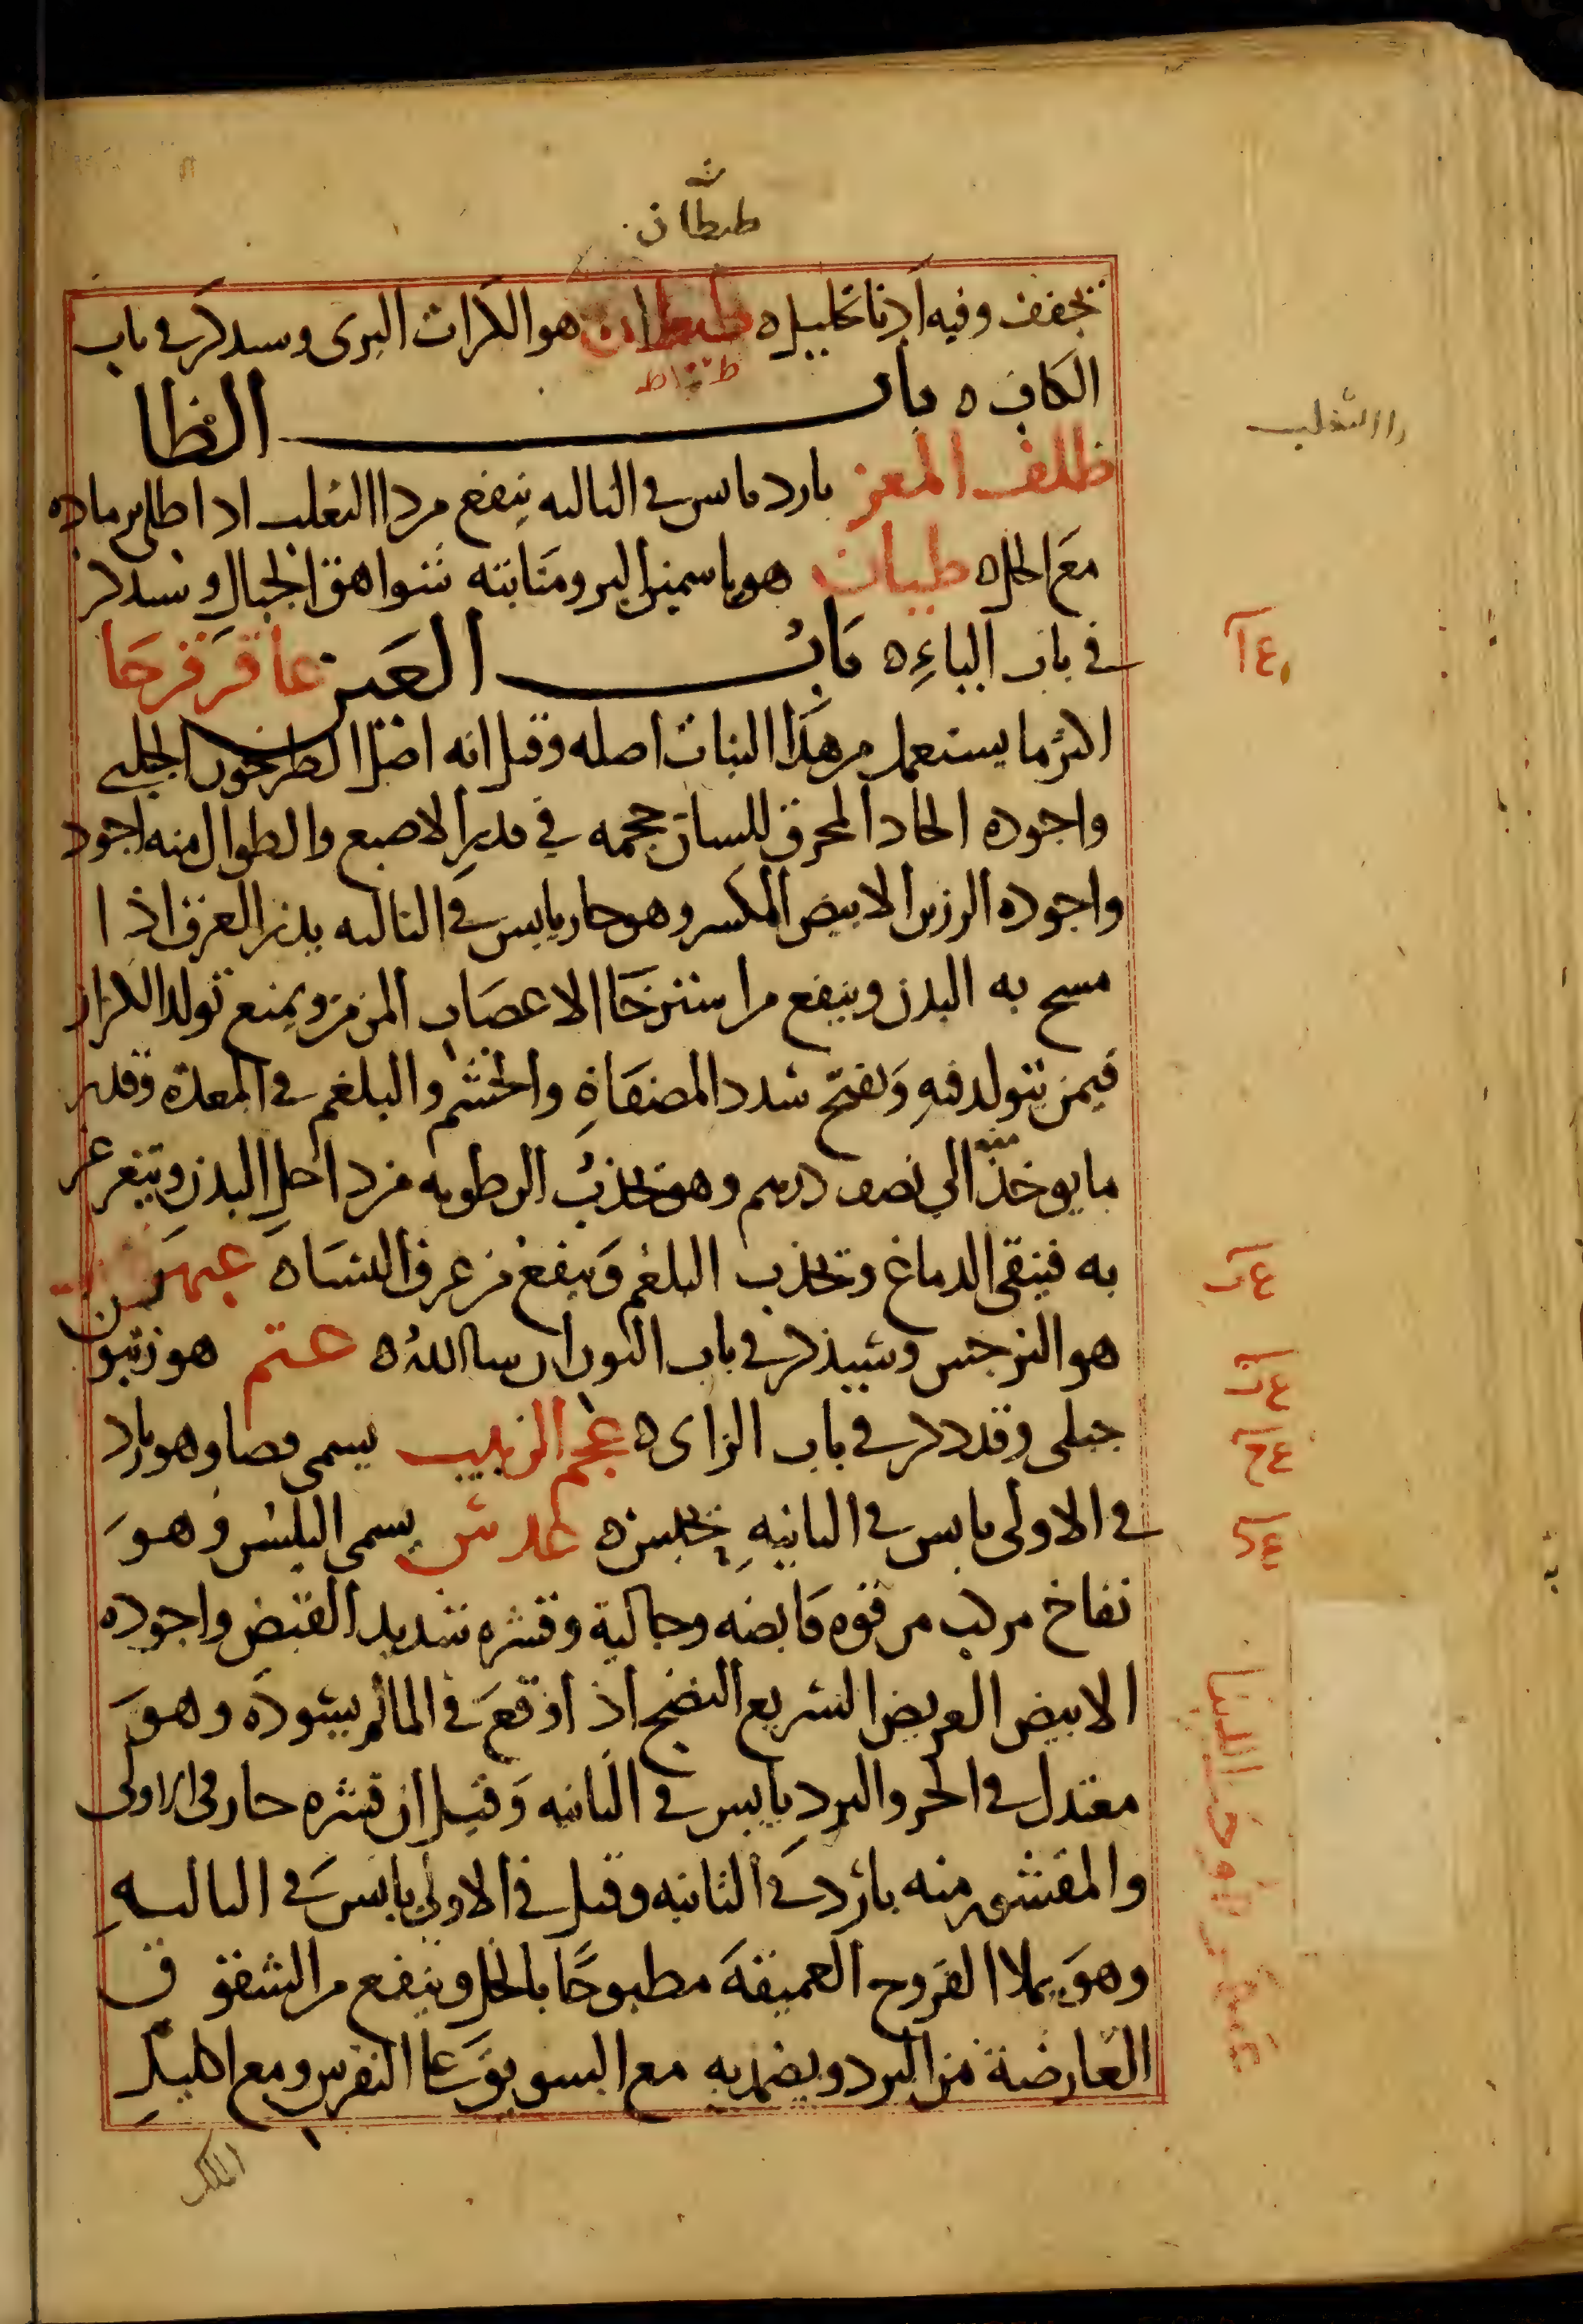 طيطان
يجفف وفيه ادنا تحليل ه طيطان هو الكراث البرى وسيدكر فى باب
الكاف ه باب الظا
ظلف المعز بارد يابس فى الثالثه ينفع من دا الثعلب ادا طلى برماده
دا الثعلب
مع الخل ه ظيان هو ياسمين البر ومنابته شواهق الجبال وسيدكر
فى باب الياء ه باب العين عاقر قرحا
اكثر ما يستعمل من هذا النبات اصله وقيل انه اصل الطرخون الجبلى
واجوده الحاد المحرق للسان حجمه فى قدر الاصبع والطوال منه اجود
واجوده الرزين الابيض المكسر وهو حار يابس فى الثالثه يدر العرق اذا
مسح به البدن وينفع من استرخا الاعصاب المزمن ويمنع تولد الكزاز
فيمن يتولد فيه ويفتح سدد المصفاة والخشم والبلغم فى المعدة وقدر
ما يوخذ منه الى نصف درهم وهو يجذب الرطوبه من داخل البدن ويتغرغر
به فينقى الدماغ ويجذب البلغم وينفع من عرق النسا ه عبهر
هو النرجس وسيذكر فى باب النون ان شا الله ه عتم هو زيتون
جبلى وقد دكر فى باب الزاى ه عجم الزبيب يسمى فصا وهو بارد
فى الاولى يابس فى الثانيه يحبس ه عدس يسمى البلس وهو
نفاخ مركب من قوه قابضه وجالية وقشره شديد القبض واجوده
الابيض العريض السريع النضج اذا وقع فى الما لم يسوده وهو
معتدل فى الحر والبرد يابس فى الثانيه وقيل ان قشره حار فى الاولى
والمقشور منه بارد فى الثانيه وقيل فى الاولى يابس فى الثالثه
وهو يملا القروح العميقة مطبوخا بالخل وينفع من الشقوق
العارضة من البرد ويضمد به مع السويق على النقرس ومع اكليل
الملك